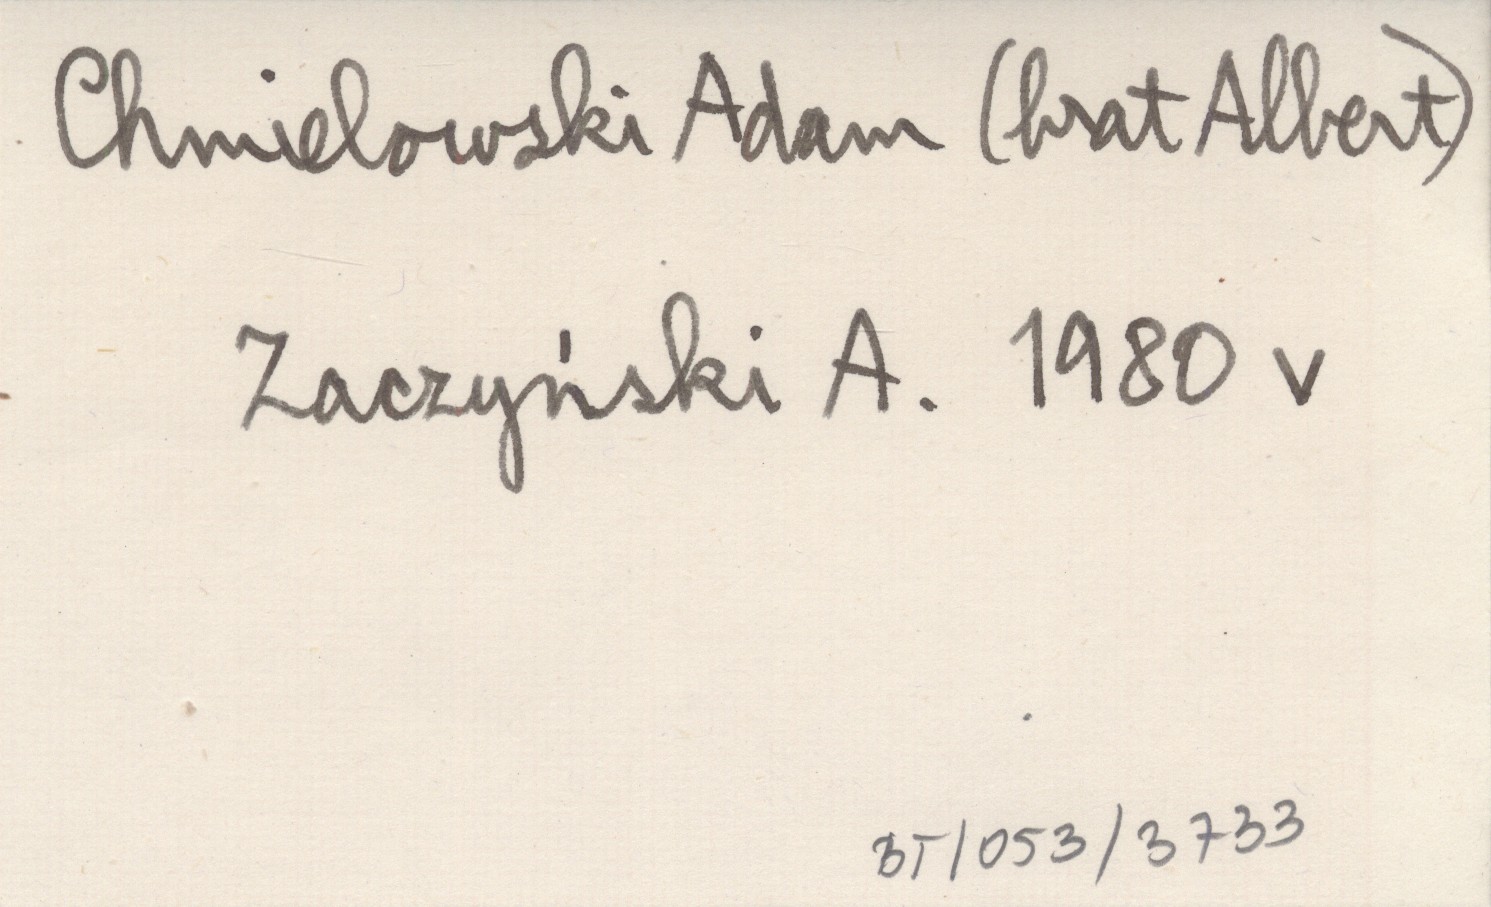 Chmielowski Adam (brat Albert)
Zaczyński A. 1980 v
BT/053/3733